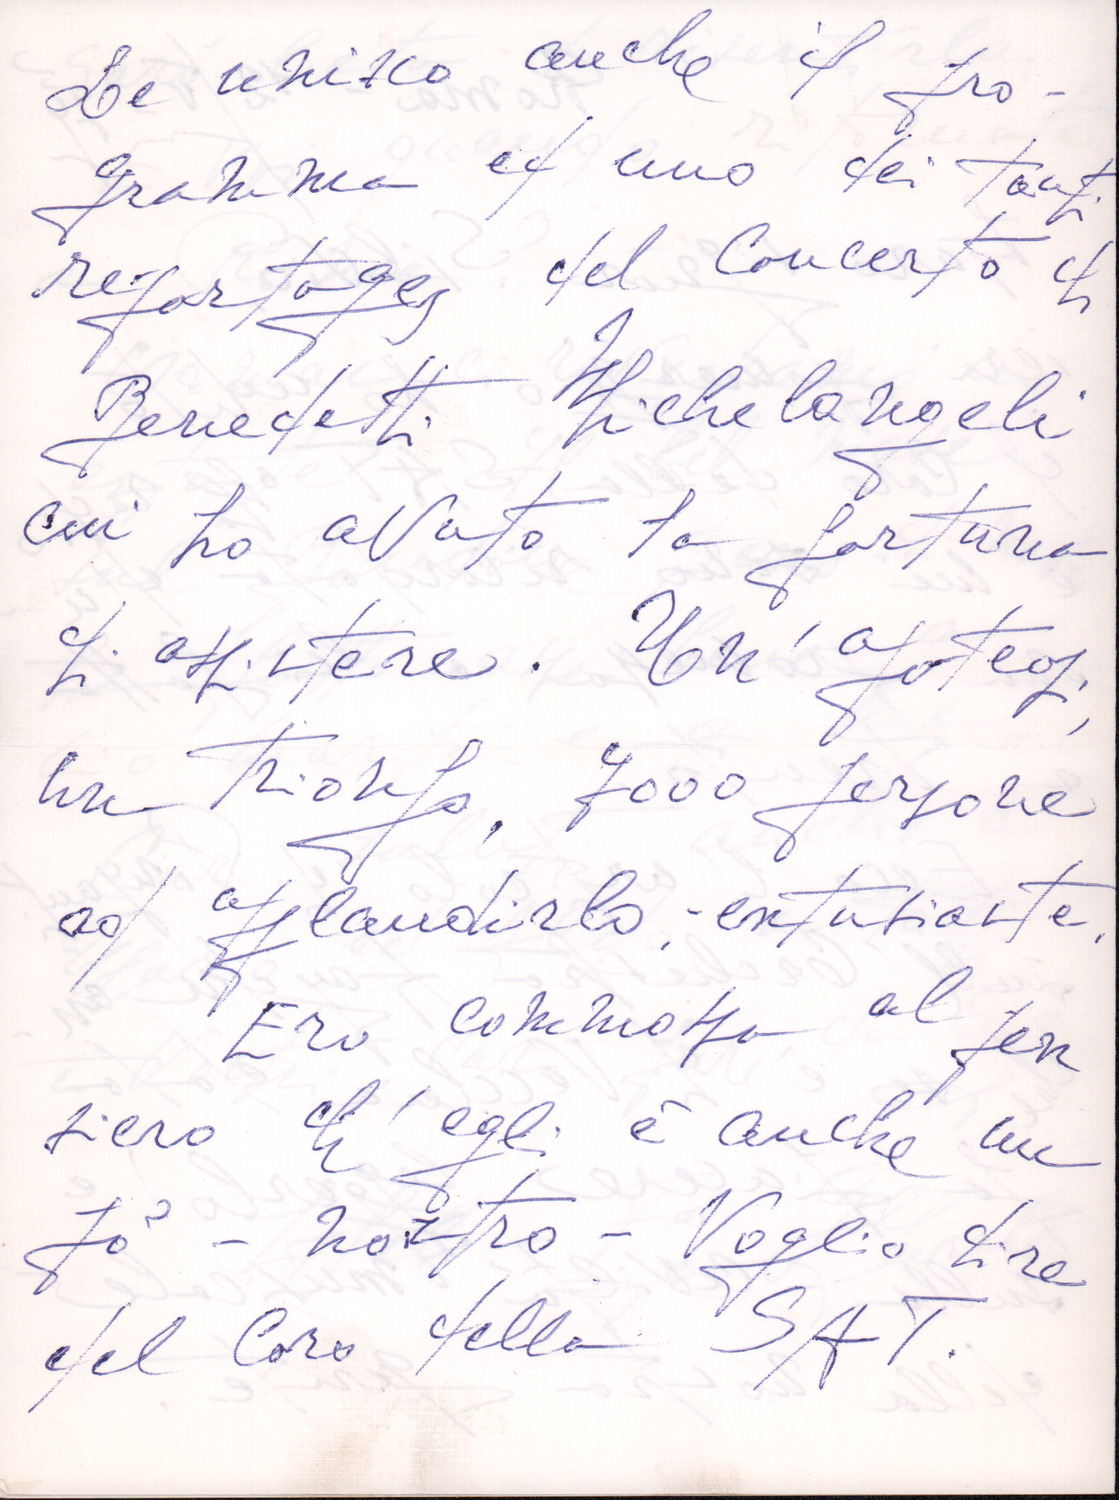 Le unisco anche il pro-
gramma ed uno dei tanti
reportages del Concerto di
Benedetti Michelangeli
cui ho avuto la fortuna
di assistere. Un' apoteosi,
un trionfo, 7000 persone
ad applaudirlo, entusiaste.
Ero commossa al pen
siero ch' egli è anche un
pò' - nostro - Voglio dire
del Coro della SAT.